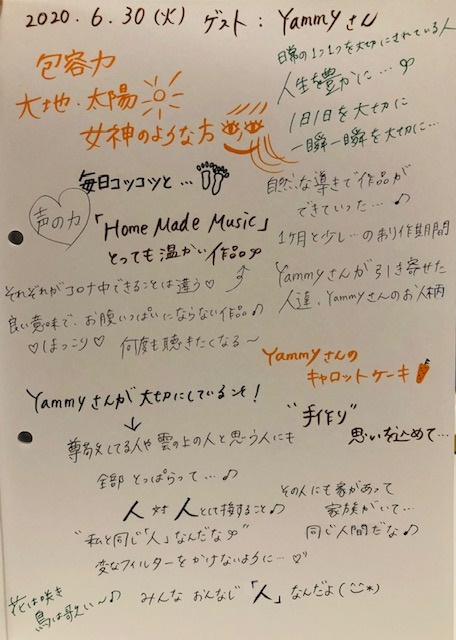 2020.6.30(火) ゲスト: Yammyさん
日常の1つ1つを大切にされている人
人生を豊かに…
1日1日を大切に
一瞬一瞬を大切に…
包容力
大地・太陽
女神のような方
毎日コツコツと…
声の力
「Home Made Music」
とっても温かい作品
自然な導きで作品が
できていった…♪
1ヶ月と少し…の制作期間
Yammyさんが引き寄せた
人達、Yammyさんのお人柄
それぞれがコロナ中できることは違う♡
良い意味で、お腹いっぱいにならない作品♪
♡ほっこり♡ 何度も聴きたくなる〜
Yammyさんの
キャロットケーキ
"手作り"
思いを込めて…
Yammyさんが大切にしている事!
↓
尊敬してる人や雲の上の人と思う人にも
全部とっぱらって…♪
人対人として接すること♪
"私と同じ「人」なんだな"
変なフィルターをかけないように…♡
その人にも家があって
家族がいて…
同じ人間だな♪
花は咲き
鳥は歌い〜♪
みんなおんなじ「人」なんだよ(^^*)